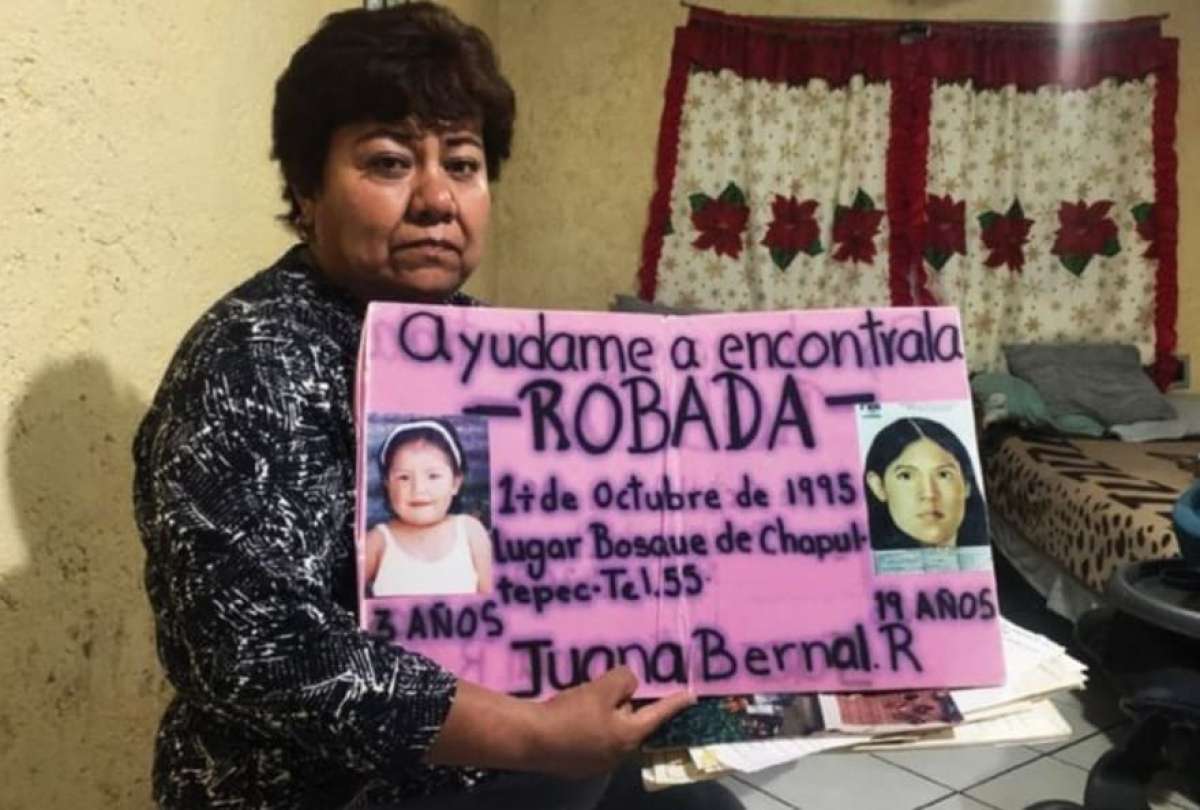 Ayudame a encontrala
-ROBADA-
1+ de Octubre de 1995
lugar Bosque de Chapul-
tepec-Tel.55.
3 AÑOS
19 AÑOS
Juana Bernal.R